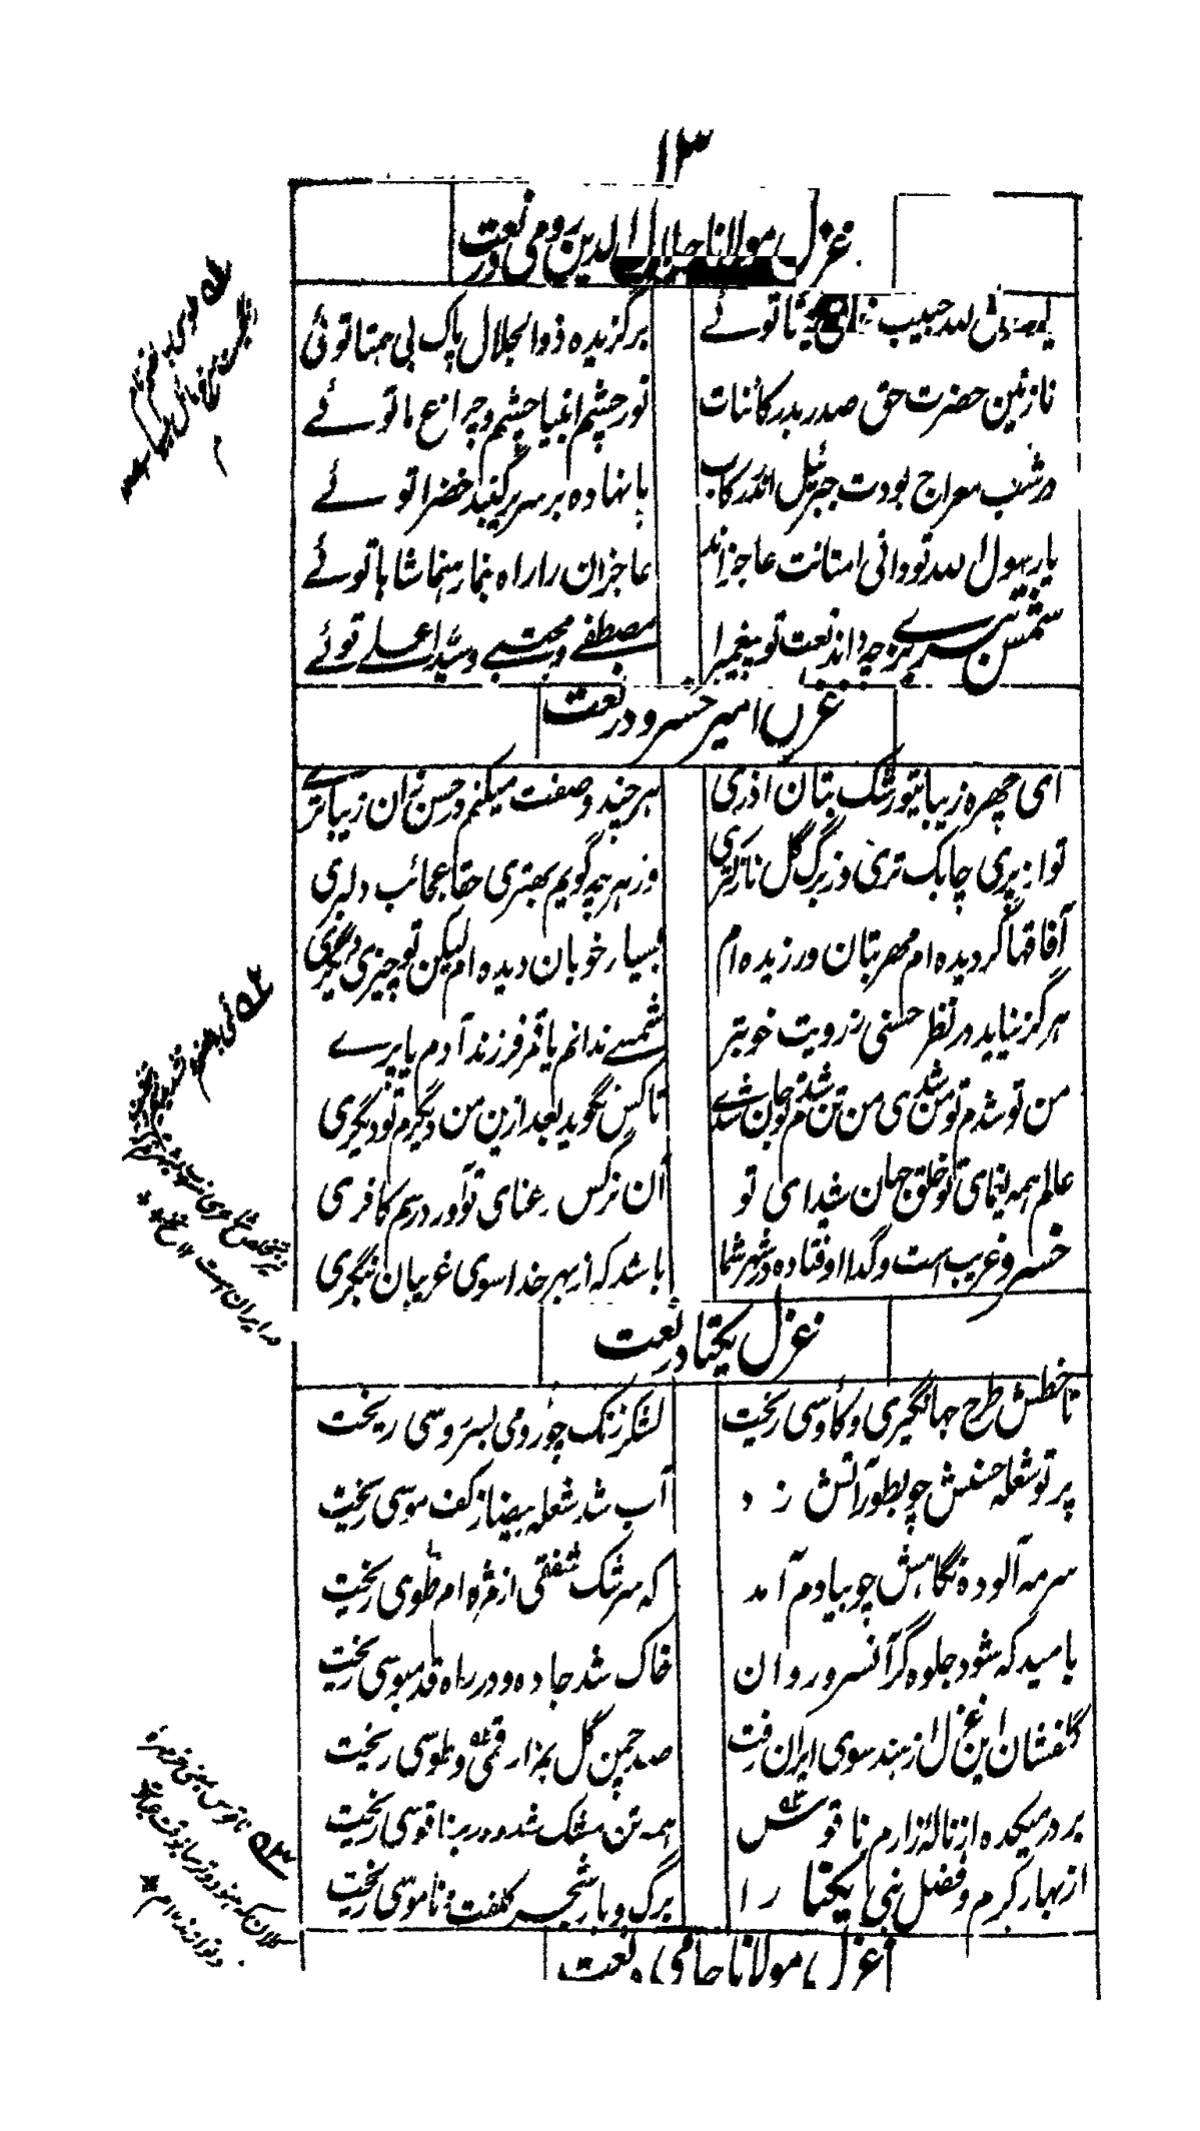 ۱۳
غزل مولانا جلال الدین رومی در نعت
حبیب توئے
برگزیده ذوالجلال پاک بی همتا توئی
نازنین حضرت حق صدر بدر کائنات
نور چشم انبیا چشم و چراغ ما توئے
در شب معراج بودت جبرئیل اندر رکاب
پا نهاده بر سر گنبد خضرا توئے
یا رسول الله تو دانی امتانت عاجزاند
عاجزان را راه نما رهنما شاها توئے
شمس تبریزی چه داند نعت تو پیغمبرا
مصطفے و مجتبے و سید اعلے توئے
غزل امیر خسرو در نعت
ای چهره زیبا تیو رشک بتان آذری
هر چند وصفت میکنم در حسن زان زیباتری
تو از پری چابک تری وز برگ گل نازکتری
وز هر چه گویم بهتری حقا عجائب دلبری
آفاقها گردیده ام مهر بتان ورزیده ام
بسیار خوبان دیده ام لیکن تو چیزی دیگری
هرگز نیاید در نظر حسنی ز رویت خوبتر
شمسے ندانم یا قمر فرزند آدم یا پرے
من تو شدم تو من شدی من تن شدم تو جان شدے
تا کس نگوید بعد ازین من دیگرم تو دیگری
عالم همه یغمای تو خلق جهان شیدای تو
آن نرگس رعنای تو آورد رسم کافری
خسرو غریب است و گدا افتاده در شهر شما
باشد که از بهر خدا سوی غریبان بنگری
غزل یکتا در نعت
تا خطش طرح جهانگیری و کاوسی ریخت
لشکر زنگ چو رومی بسر روسی ریخت
پرتو شعله حسنش چو بطور آتش زد
آب شد شعله بیضا ز کف موسی ریخت
سرمه آلوده نگاهش چو بیادم آمد
که سرشک شفقی از مژه ام طوسی ریخت
بامید که شود جلوه گر آنسرو روان
خاک شد جاده و در راه قدمبوسی ریخت
گلفشان این غزل از هند سوی ایران رفت
صد چمن گل بمزار قمی و طوسی ریخت
بر در میکده از ناله زارم ناقوس
همه تن مشک شد و در بر ناقوسی ریخت
از بهار کرم و فضل نبی یکتا را
برگ و بار شجر کلفت ناموسی ریخت
غزل مولانا جامی در نعت